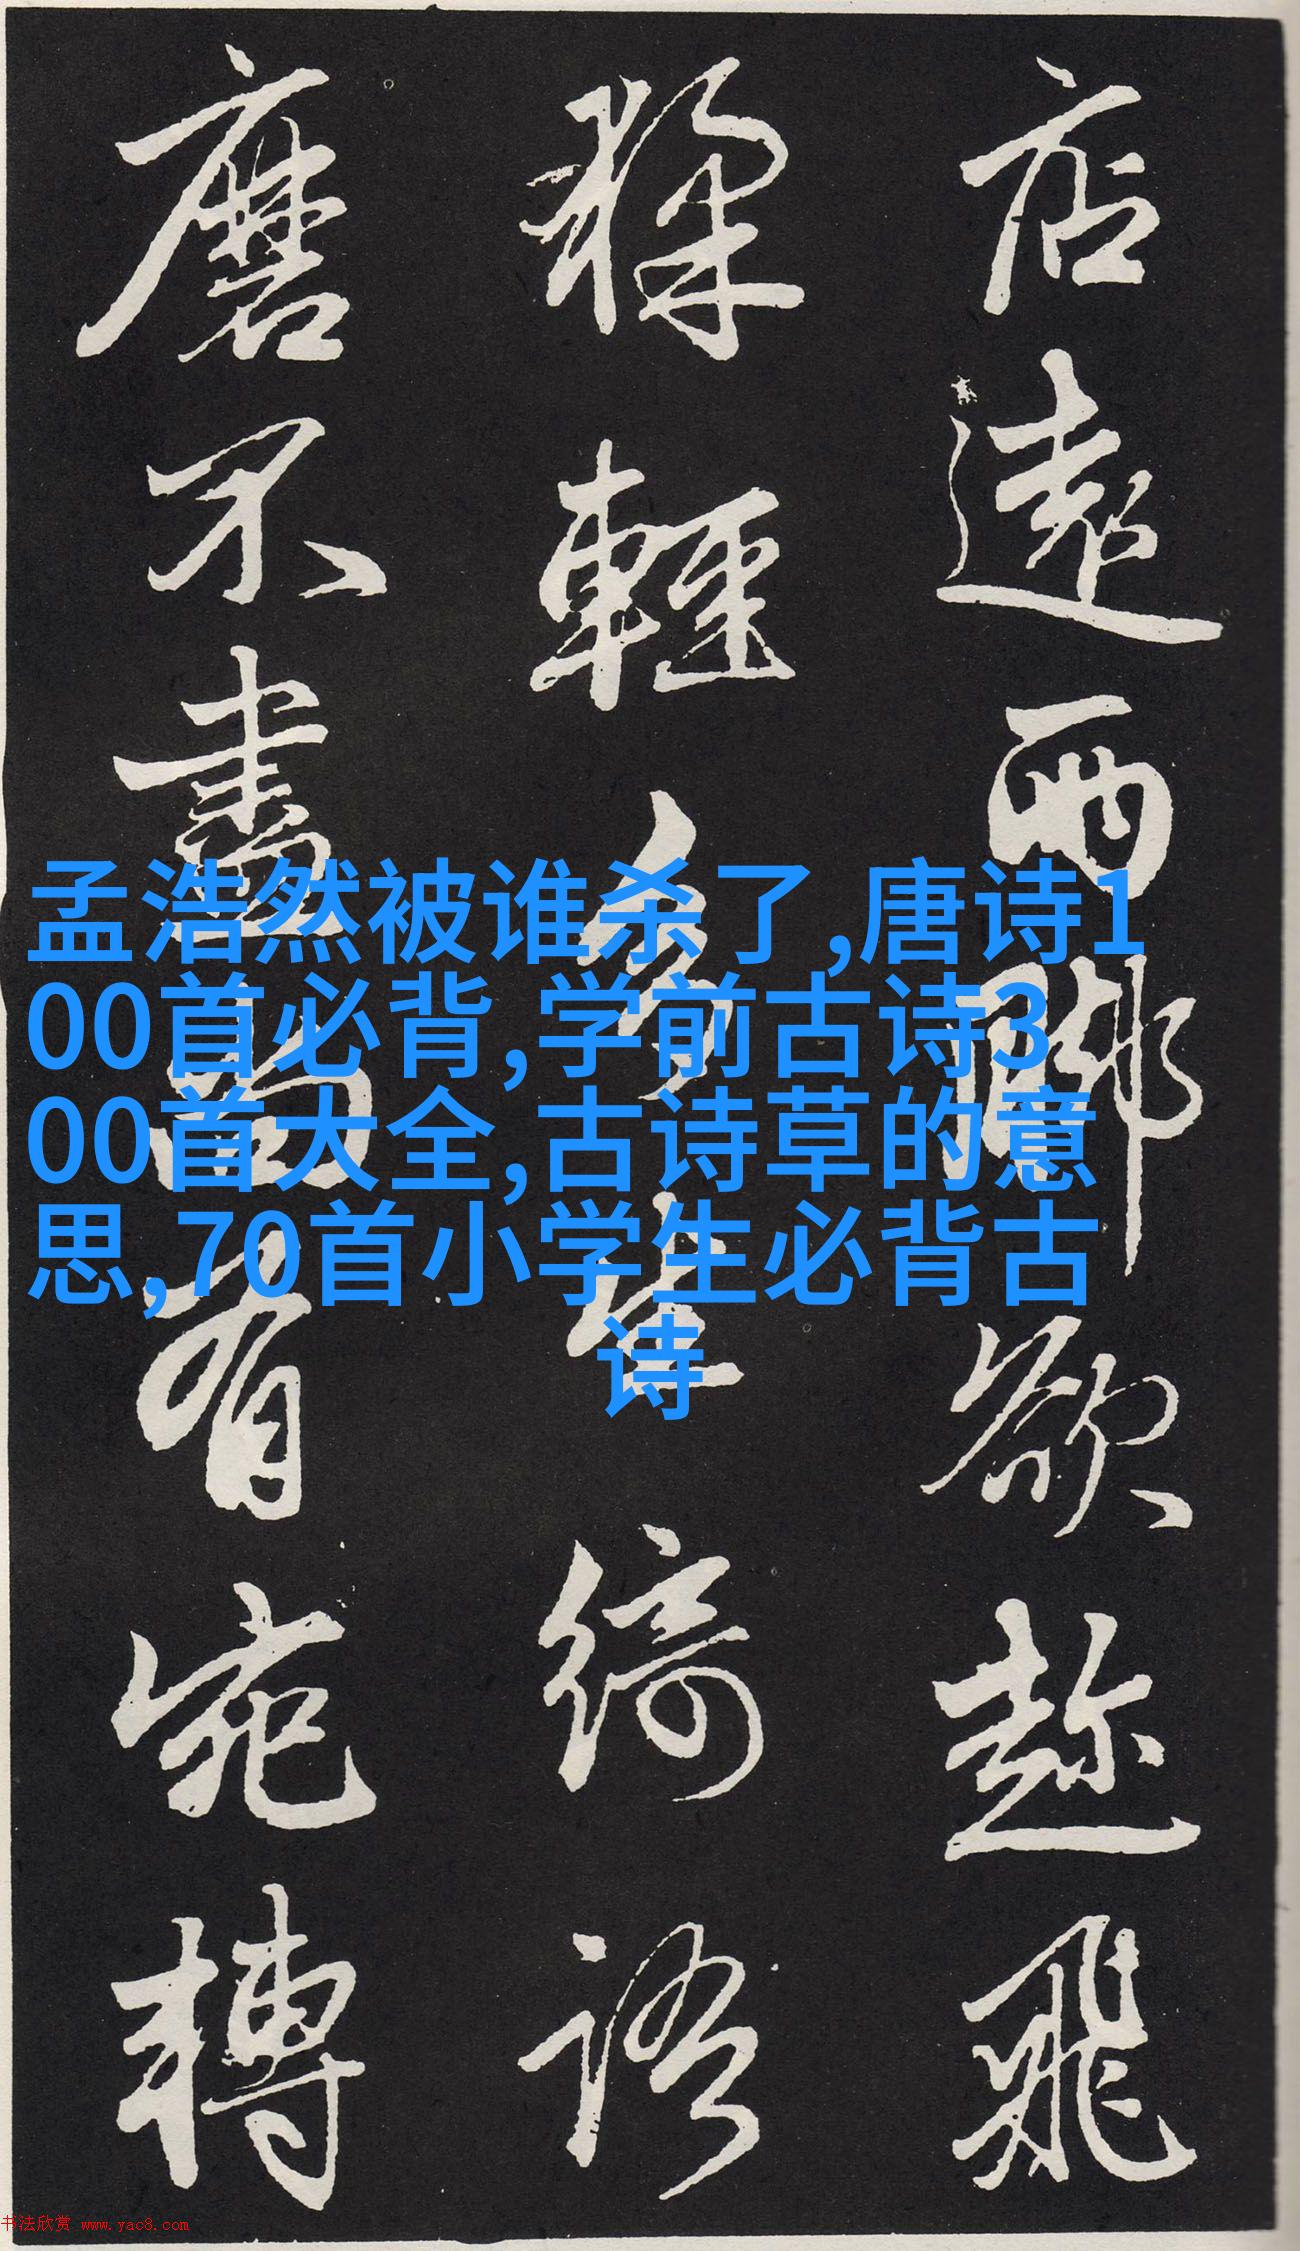 店遠兩腳欲趂飛
輕
綺語
磨不盡
有宛轉
孟浩然被谁杀了,唐诗1
00首必背,学前古诗3
00首大全,古诗草的意
思,70首小学生必背古
诗
书法欣赏 www.yac8.com